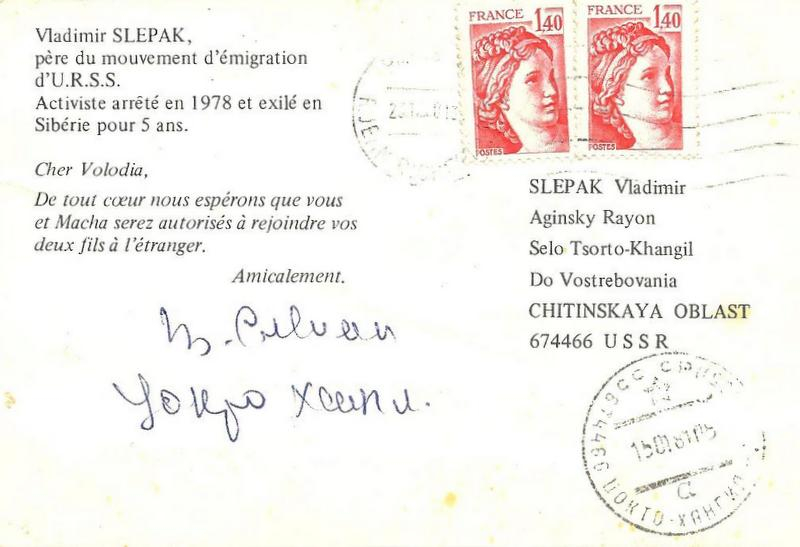 Vladimir SLEPAK,
père du mouvement d'émigration
d'U.R.S.S.
Activiste arrêté en 1978 et exilé en
Sibérie pour 5 ans.
Cher Volodia,
De tout cœur nous espérons que vous
et Macha serez autorisés à rejoindre vos
deux fils à l'étranger.
Amicalement.
FRANCE 1,40
POSTES
FRANCE 1,40
POSTES
SLEPAK Vladimir
Aginsky Rayon
Selo Tsorto-Khangil
Do Vostrebovania
CHITINSKAYA OBLAST
674466 USSR
ЦОКТО-ХАНГИЛ